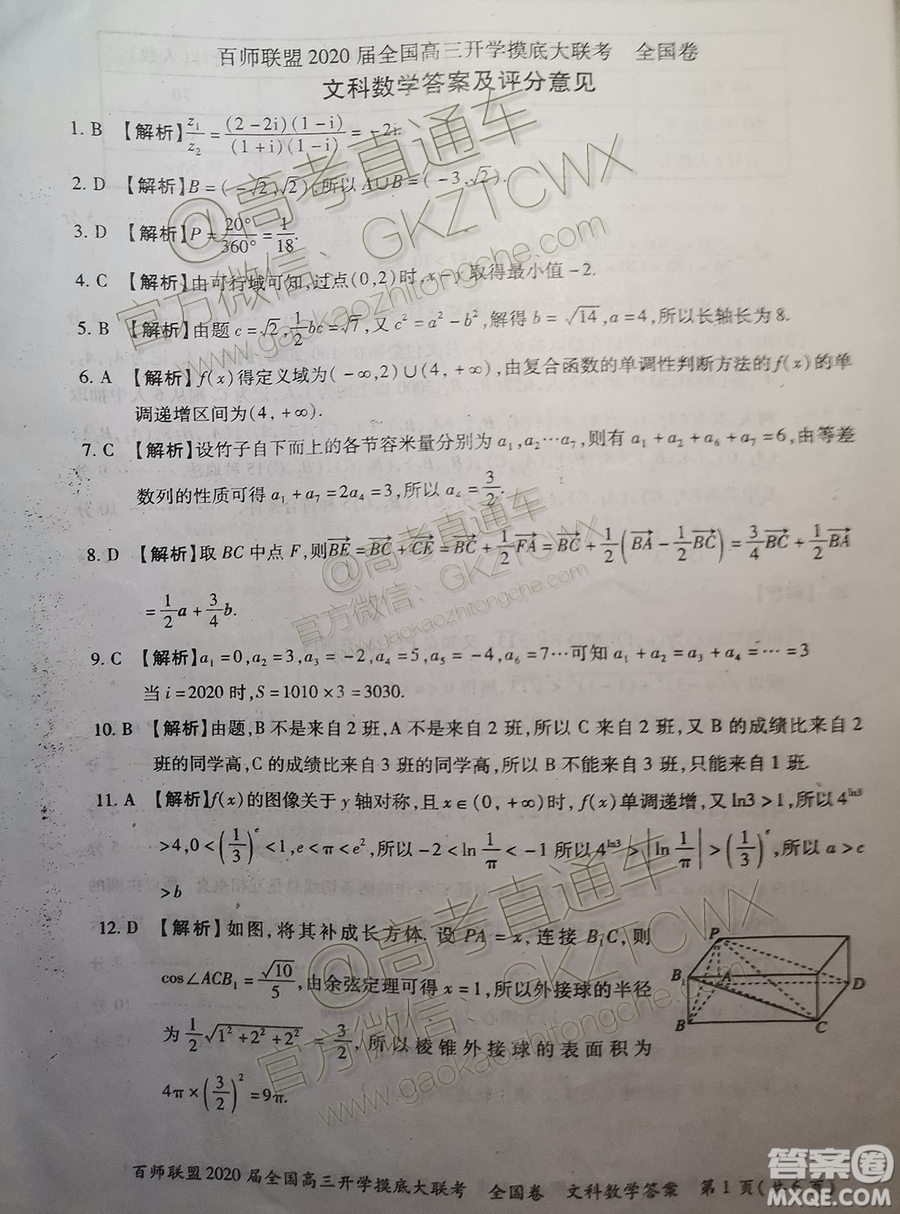 百师联盟2020届全国高三开学摸底大联考 全国卷
文科数学答案及评分意见
1. B 【解析】z₁/z₂=(2-2i)(1-i)/(1+i)(1-i)=-2i.
2. D 【解析】B=(-√2,√2),所以A∪B=(-3,√2).
3. D 【解析】P=20°/360°=1/18.
4. C 【解析】由可行域可知,过点(0,2)时,x-y取得最小值-2.
5. B 【解析】由题c=√2,1/2bc=√7,又c²=a²-b²,解得b=√14,a=4,所以长轴长为8.
6. A 【解析】f(x)得定义域为(-∞,2)∪(4,+∞),由复合函数的单调性判断方法的f(x)的单
调递增区间为(4,+∞).
7. C 【解析】设竹子自下而上的各节容米量分别为a₁,a₂…a₇,则有a₁+a₂+a₆+a₇=6,由等差
数列的性质可得a₁+a₇=2a₄=3,所以a₄=3/2.
8. D 【解析】取BC中点F,则BE→=BC→+CE→=BC→+1/2FA→=BC→+1/2(BA→-1/2BC→)=3/4BC→+1/2BA→
=1/2a+3/4b.
9. C 【解析】a₁=0,a₂=3,a₃=-2,a₄=5,a₅=-4,a₆=7…可知a₁+a₂=a₃+a₄=…=3
当i=2020时,S=1010×3=3030.
10. B 【解析】由题,B不是来自2班,A不是来自2班,所以C来自2班,又B的成绩比来自2
班的同学高,C的成绩比来自3班的同学高,所以B不能来自3班,只能来自1班.
11. A 【解析】f(x)的图像关于y轴对称,且x∈(0,+∞)时,f(x)单调递增,又ln3>1,所以4^ln3
>4,0<(1/3)^e<1,e<π<e²,所以-2<ln1/π<-1所以4^ln3>|ln1/π|>(1/3)^e,所以a>c
>b
12. D 【解析】如图,将其补成长方体.设PA=x,连接B₁C,则
cos∠ACB₁=√10/5,由余弦定理可得x=1,所以外接球的半径
为1/2√1²+2²+2²=3/2,所以棱锥外接球的表面积为
4π×(3/2)²=9π.
P
B₁
A
D
B
C
百师联盟2020届全国高三开学摸底大联考 全国卷 文科数学答案 第1页(共6页)
@高考直通车
官方微信:GKZTCWX
www.gaokaozhitongche.com
@高考直通车
官方微信:GKZTCWX
www.gaokaozhitongche.com
@高考直通车
官方微信:GKZTCWX
www.gaokaozhitongche.com
答案圈
MXQE.COM